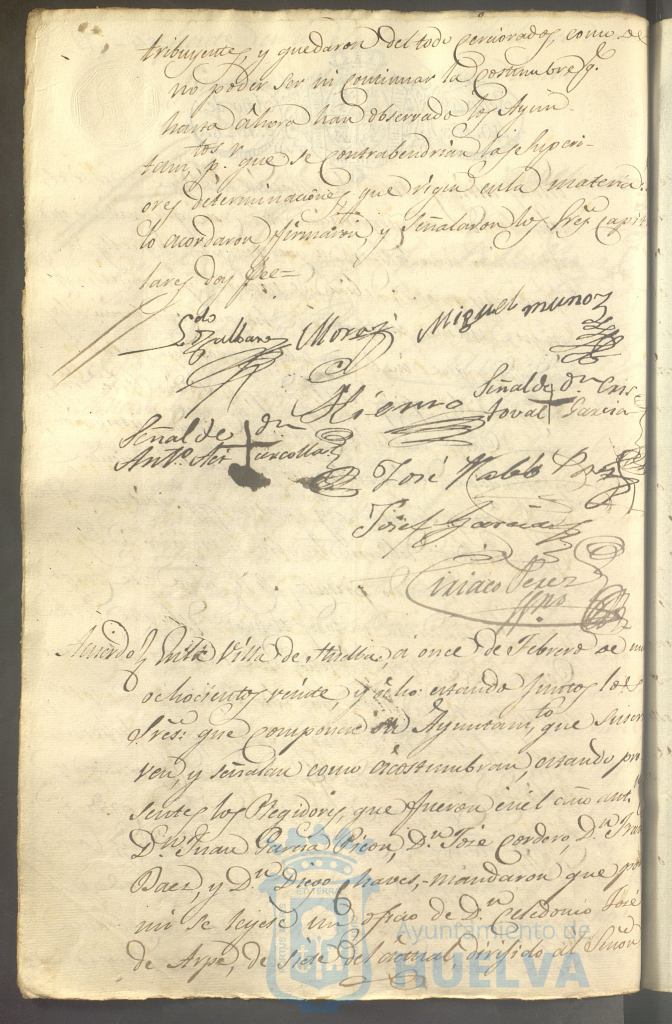 tribuyentes, y quedaron del todo cerciorados, como de
no poder ser ni continuar la costumbre q.e
hasta ahora han observado los Ayun-
tam.tos p.r que se contrabendrian las Superi-
ores determinaciones, que rigen en la materia:
lo acordaron, firmaron, y señalaron los Sres. capit
lares doy fee=
Morae Miguel munoz
Hierro Señal de d.n Cris
toval Garcia
Señal de d.n
Ant.o
José Perez
Josef Garcia
Ciriaco Perez
ss.no
Acuerdo En la Villa de a once de Febrero de mi
ochocientos veinte, y ocho: estando juntos los
Sres. que componen su Ayuntam.to, que suscri
ven, y señalan como acostumbran, estando pre
sentes los Regidores, que fueron en el año anti
D.n Juan Garcia Picon, D.n José Cordero, D.n Fran
Baez, y D.n Diego Chaves, mandaron que por
mi se leyese un oficio de D.n Celedonio José
de Arpe, de siete del actual, dirijido al Señor
Ayuntamiento de
HUELVA